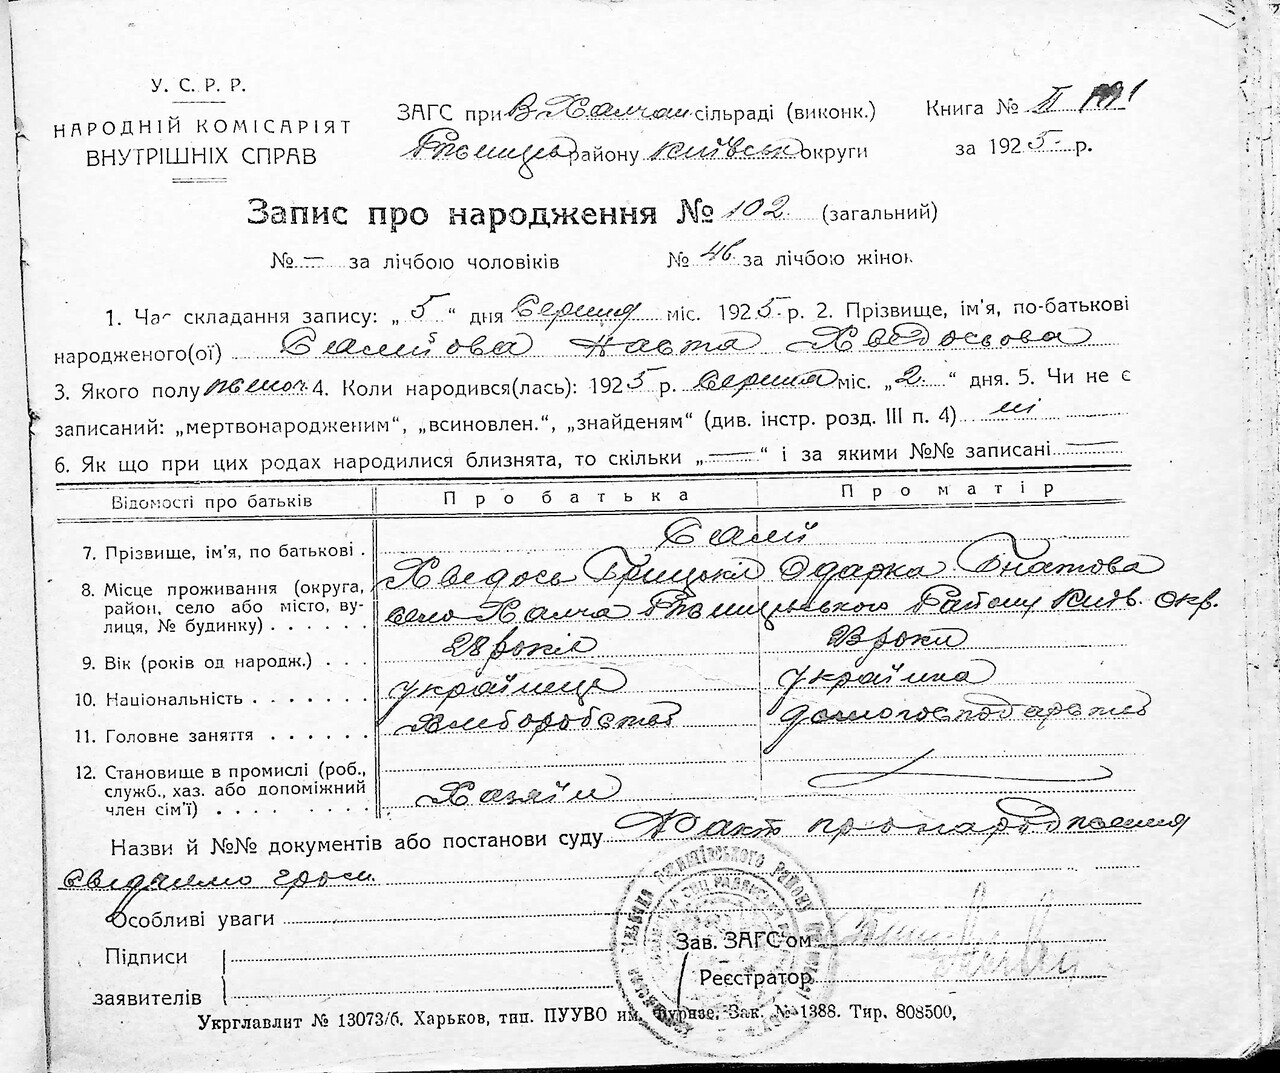 У. С. Р. Р.
НАРОДНІЙ КОМІСАРІЯТ
ВНУТРІШНІХ СПРАВ
ЗАГС при В Халчан сільраді (виконк.)
Ржищів району Київськ округи
Книга № II
за 1925 р.
Запис про народження № 102 (загальний)
№ — за лічбою чоловіків № 46 за лічбою жінок
1. Час складання запису: „ 5 “ дня Серпня міс. 1925 р. 2. Прізвище, ім'я, по-батькові
народженого(ої) Салійова Настя Хведосьова
3. Якого полу жіноч 4. Коли народився(лась): 1925 р. Серпня міс. „ 2 “ дня. 5. Чи не є
записаний: „мертвонародженим“, „всиновлен.“, „знайденям“ (див. інстр. розд. III п. 4) ні
6. Як що при цих родах народилися близнята, то скільки „ — “ і за якими №№ записані —
Відомості про батьків Про батька Про матір
7. Прізвище, ім'я, по батькові . Салій
Хведось Грицьків Одарка Гнатова
8. Місце проживання (округа,
район, село або місто, ву-
лиця, № будинку) . . . . .
село Халча Ржищівського Району Київ. окр.
9. Вік (років од народж.) . . . 28 років 23 роки
10. Національність . . . . . . . українець українка
11. Головне заняття . . . . . . Хліборобство домогосподарство
12. Становище в промислі (роб.,
служб., хаз. або допоміжний
член сім'ї) . . . . . . . . Хазяїн
Назви й №№ документів або постанови суду Факт про народження
свідчимо
Особливі уваги
Підписи
заявителів
Зав. ЗАГС'ом
Реєстратор
Укрглавлит № 13073/б. Харьков, тип. ПУУВО им. Фрунзе. Зак. № 1388. Тир. 808500.